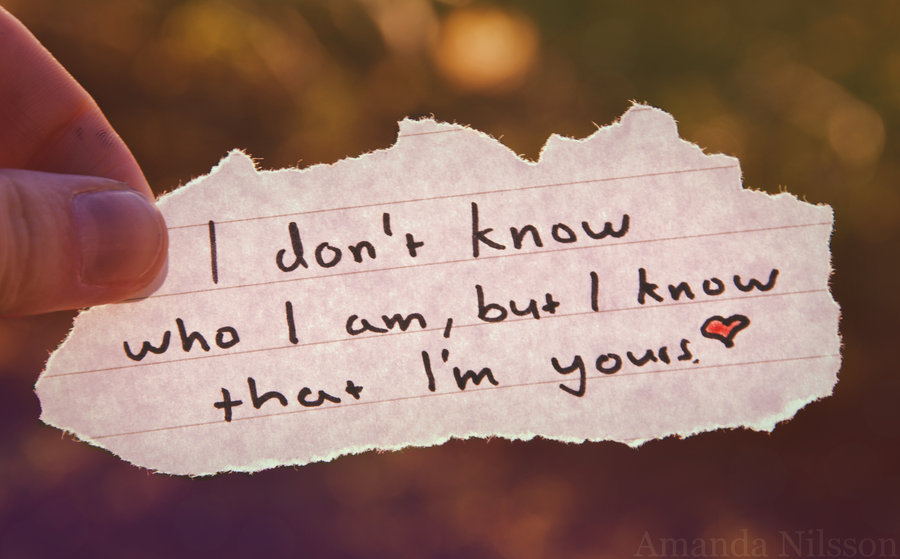 I don't know
who I am, but I know
that I'm yours.
Amanda Nilsson